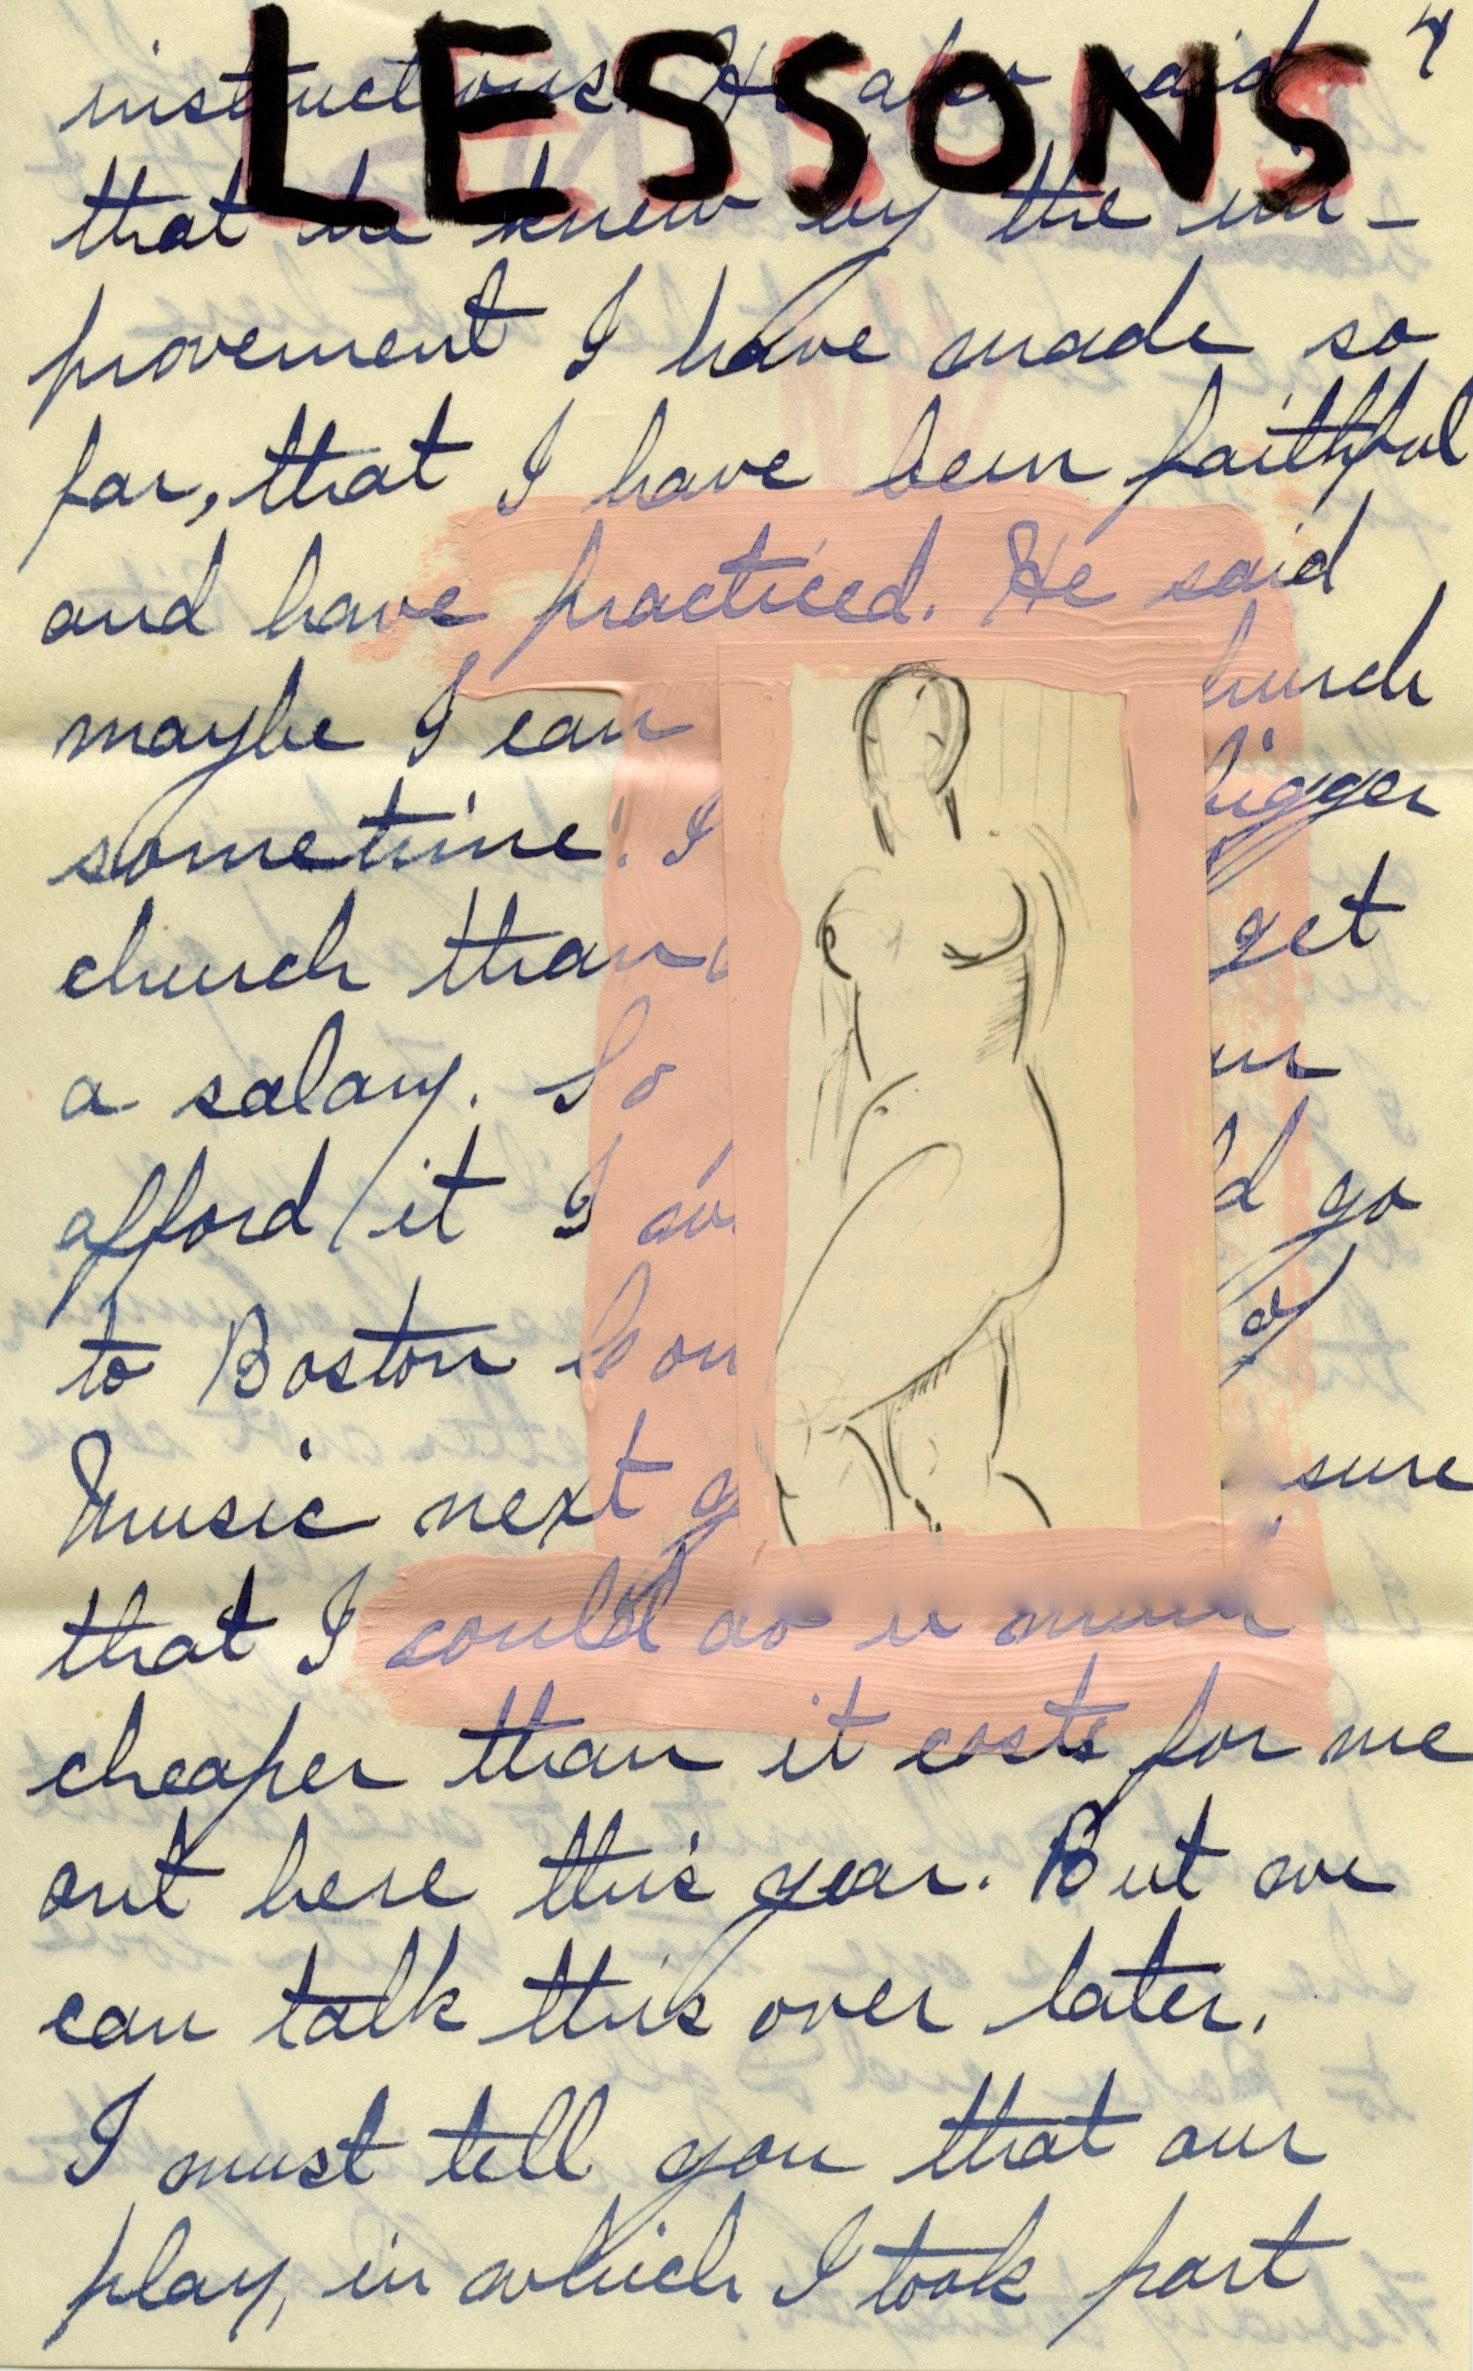 LESSONS
4
instructions. He also said
that he knew by the im-
provement I have made so
far, that I have been faithful
and have practiced. He said
maybe I can hurch
sometime. I bigger
church than get
a salary. So
afford it I d go
to Boston of
Music next sure
that I could do it much
cheaper than it costs for me
out here this year. But we
can talk this over later.
I must tell you that our
play, in which I took part